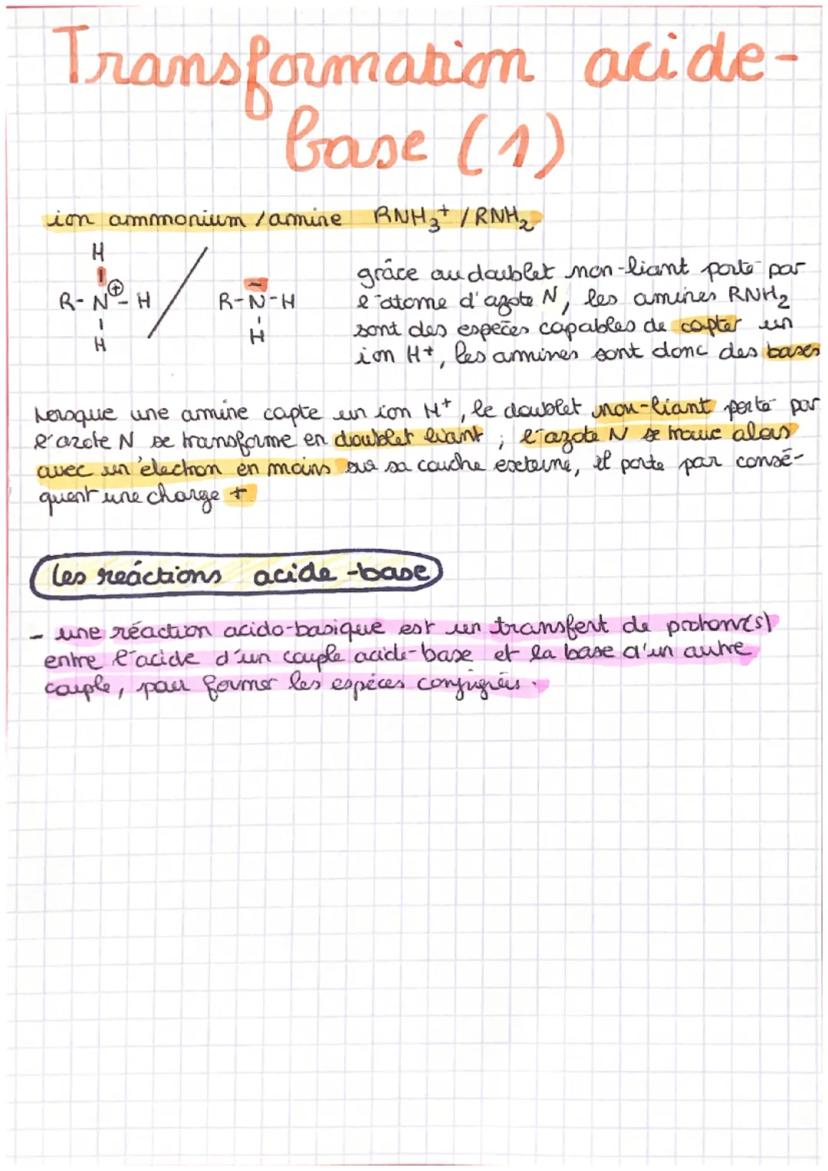 Transformation acide-
base (1)
ion ammonium / amine RNH₃⁺ / RNH₂
H
R-N⊕-H
H
R-N-H
H
grâce au doublet non-liant porté par
l'atome d'azote N, les amines RNH₂
sont des espèces capables de capter un
ion H⁺, les amines sont donc des bases
Lorsque une amine capte un ion H⁺, le doublet non-liant porté par
l'azote N se transforme en doublet liant ; l'azote N se trouve alors
avec un électron en moins sur sa couche externe, il porte par consé-
quent une charge +
Les réactions acide-base
- une réaction acido-basique est un transfert de proton(s)
entre l'acide d'un couple acide-base et la base d'un autre
couple, pour former les espèces conjuguées.